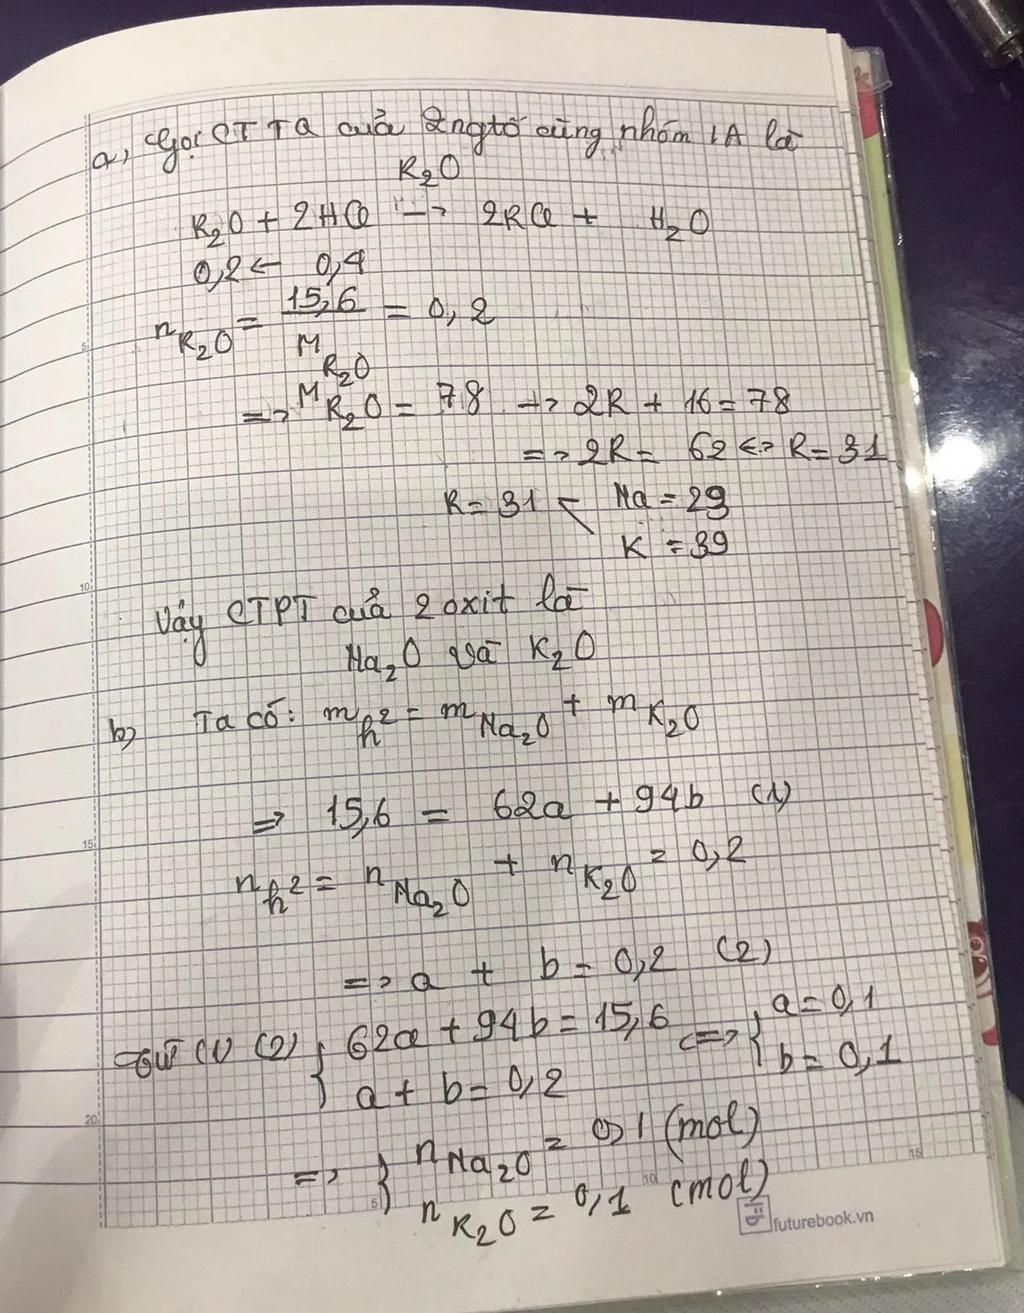 a, Gọi CT TQ của 2 ngtố cùng nhóm IA là
R₂O
R₂O + 2HCl → 2RCl + H₂O
0,2 ← 0,4
n R₂O = 15,6 / M R₂O = 0,2
=> M R₂O = 78 → 2R + 16 = 78
=> 2R = 62 <=> R = 31
R = 31 < Na = 29
K = 39
Vậy CTPT của 2 oxit là
Na₂O và K₂O
b) Ta có: m h² = m Na₂O + m K₂O
=> 15,6 = 62a + 94b (1)
n h² = n Na₂O + n K₂O = 0,2
=> a + b = 0,2 (2)
Từ (1) (2) { 62a + 94b = 15,6 <=> { a = 0,1
a + b = 0,2 b = 0,1
=> { n Na₂O = 0,1 (mol)
n K₂O = 0,1 (mol)
futurebook.vn
5
10
15
20
5
10
15